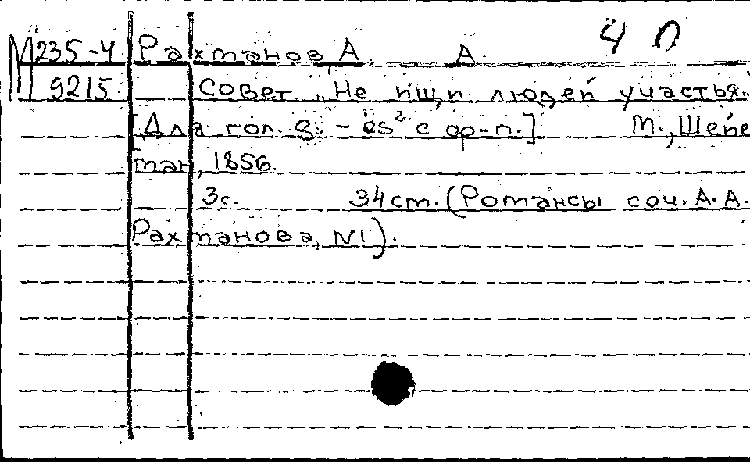 М 235-4 Рахманов, А. А. 4 П
9215. Совет. Не ищи людей участья.
[Для гол. g. – es² с ор-п.] М., Шейе
ман, 1856.
3с. 34 cm. (Романсы соч. А. А.
Рахманова, N1).